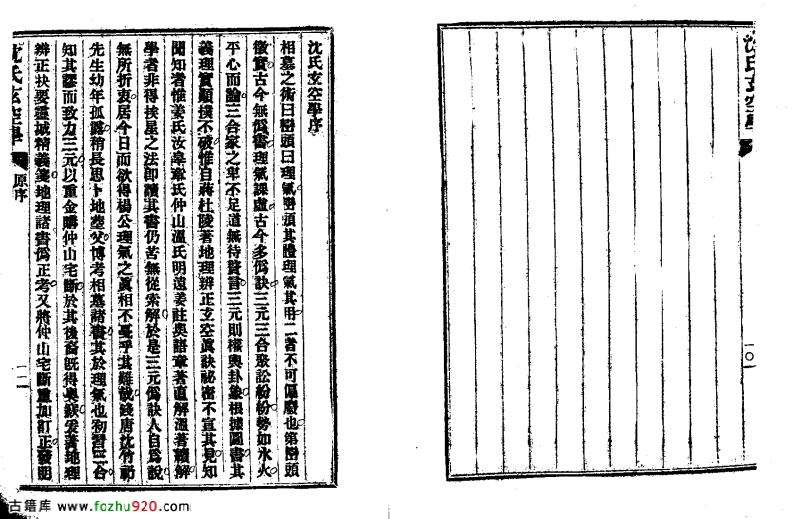 沈氏玄空學
一〇
沈氏玄空學序
相墓之術曰巒頭曰理氣巒頭其體理氣其用二者不可偏廢也第巒頭
徵實古今無僞書理氣課虛古今多僞訣三元三合聚訟紛紛勢如水火
平心而論三合家之卑不足道無待贅言三元則權輿卦象根據圖書其
義理實顚撲不破惟自蔣杜陵著地理辨正玄空眞訣祕密不宣其見知
聞知者惟姜氏汝皋章氏仲山溫氏明遠姜註奧語章著直解溫著續解
學者非得挨星之法卽讀其書仍苦無從索解於是三元僞訣人自爲說
無所折衷居今日而欲得楊公理氣之眞相不戞乎其難哉錢唐沈竹礽
先生幼年孤露稍長思卜地塟父博考相墓諸書其於理氣也初習三合
知其謬而致力三元以重金購仲山宅斷於其後裔旣得奧窾爰著地理
辨正抉要靈城精義箋地理諸書僞正考又將仲山宅斷重加訂正發明
沈氏玄空學
原序
一一
古籍库 www.fozhu920.com